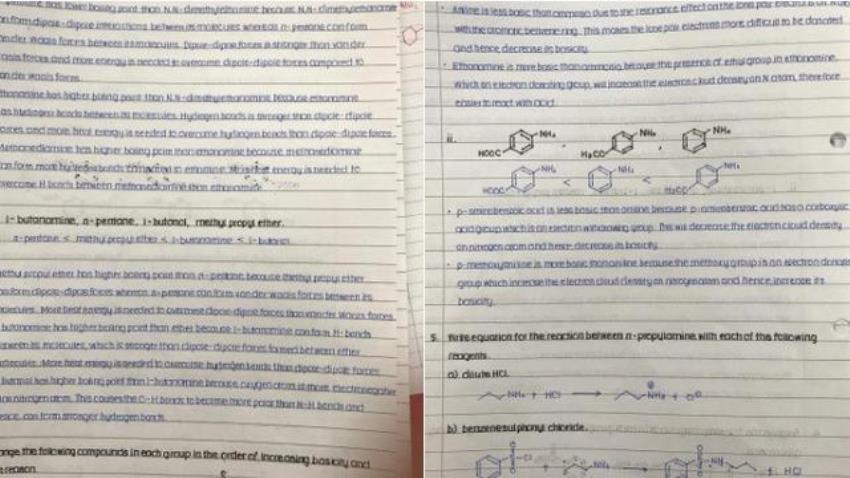 has lower boiling point than N,N-dimethylethanamine because N,N-dimethylethanamine
form dipole-dipole interactions between its molecules whereas n-pentane can form
van der Waals forces between its molecules. Dipole-dipole forces is stronger than van der
forces and more energy is needed to overcome dipole-dipole forces compared to
van der Waals forces.
has higher boiling point than N,N-dimethylethanamine because ethanamine
has hydrogen bonds between its molecules. Hydrogen bonds is stronger than dipole-dipole
forces and more heat energy is needed to overcome hydrogen bonds than dipole-dipole forces.
has higher boiling point than ethanamine because methanediamine
can form more hydrogen bonds compared to ethanamine. energy is needed to
overcome H bonds between methanediamine than ethanamine.
1-butanamine, n-pentane, 1-butanol, methyl propyl ether.
n-pentane < methyl propyl ether < 1-butanamine < 1-butanol
methyl propyl ether has higher boiling point than n-pentane because methyl propyl ether
can form dipole-dipole forces whereas n-pentane can form van der Waals forces between its
molecules. More heat energy is needed to overcome dipole-dipole forces than van der Waals forces.
butanamine has higher boiling point than ether because 1-butanamine can form H-bonds
between its molecules, which is stronger than dipole-dipole forces formed between ether
molecules. More heat energy is needed to overcome hydrogen bonds than dipole-dipole forces.
has higher boiling point than 1-butanamine because oxygen atom is more electronegative
nitrogen atom. This causes the O-H bonds to become more polar than N-H bonds and
hence, can form stronger hydrogen bonds.
the following compounds in each group in the order of increasing basicity and
reason.
Aniline is less basic than ammonia due to the resonance effect on the lone pair
with the aromatic benzene ring. This makes the lone pair electrons more difficult to be donated
and hence decrease its basicity.
• Ethanamine is more basic than ammonia because the presence of ethyl group in ethanamine,
which an electron donating group, will increase the electron cloud density on N atom, therefore
easier to react with acid.
ii.
NH₂ , NH₂ , NH₂
HOOC H₃CO
NH₂ < NH₂ < NH₂
HOOC H₃CO
• p-aminobenzoic acid is less basic than aniline because p-aminobenzoic acid has a carboxylic
acid group which is an electron withdrawing group. This will decrease the electron cloud density
on nitrogen atom and hence decrease its basicity.
• p-methoxyaniline is more basic than aniline because the methoxy group is an electron
group which increase the electron cloud density on nitrogen atom and hence, increase its
basicity.
5. Write equation for the reaction between n-propylamine with each of the following
reagents.
a) dilute HCl.
NH₂ + HCl → NH₃ + Cl
b) benzenesulphonyl chloride.
Cl + NH₂ → NH + HCl